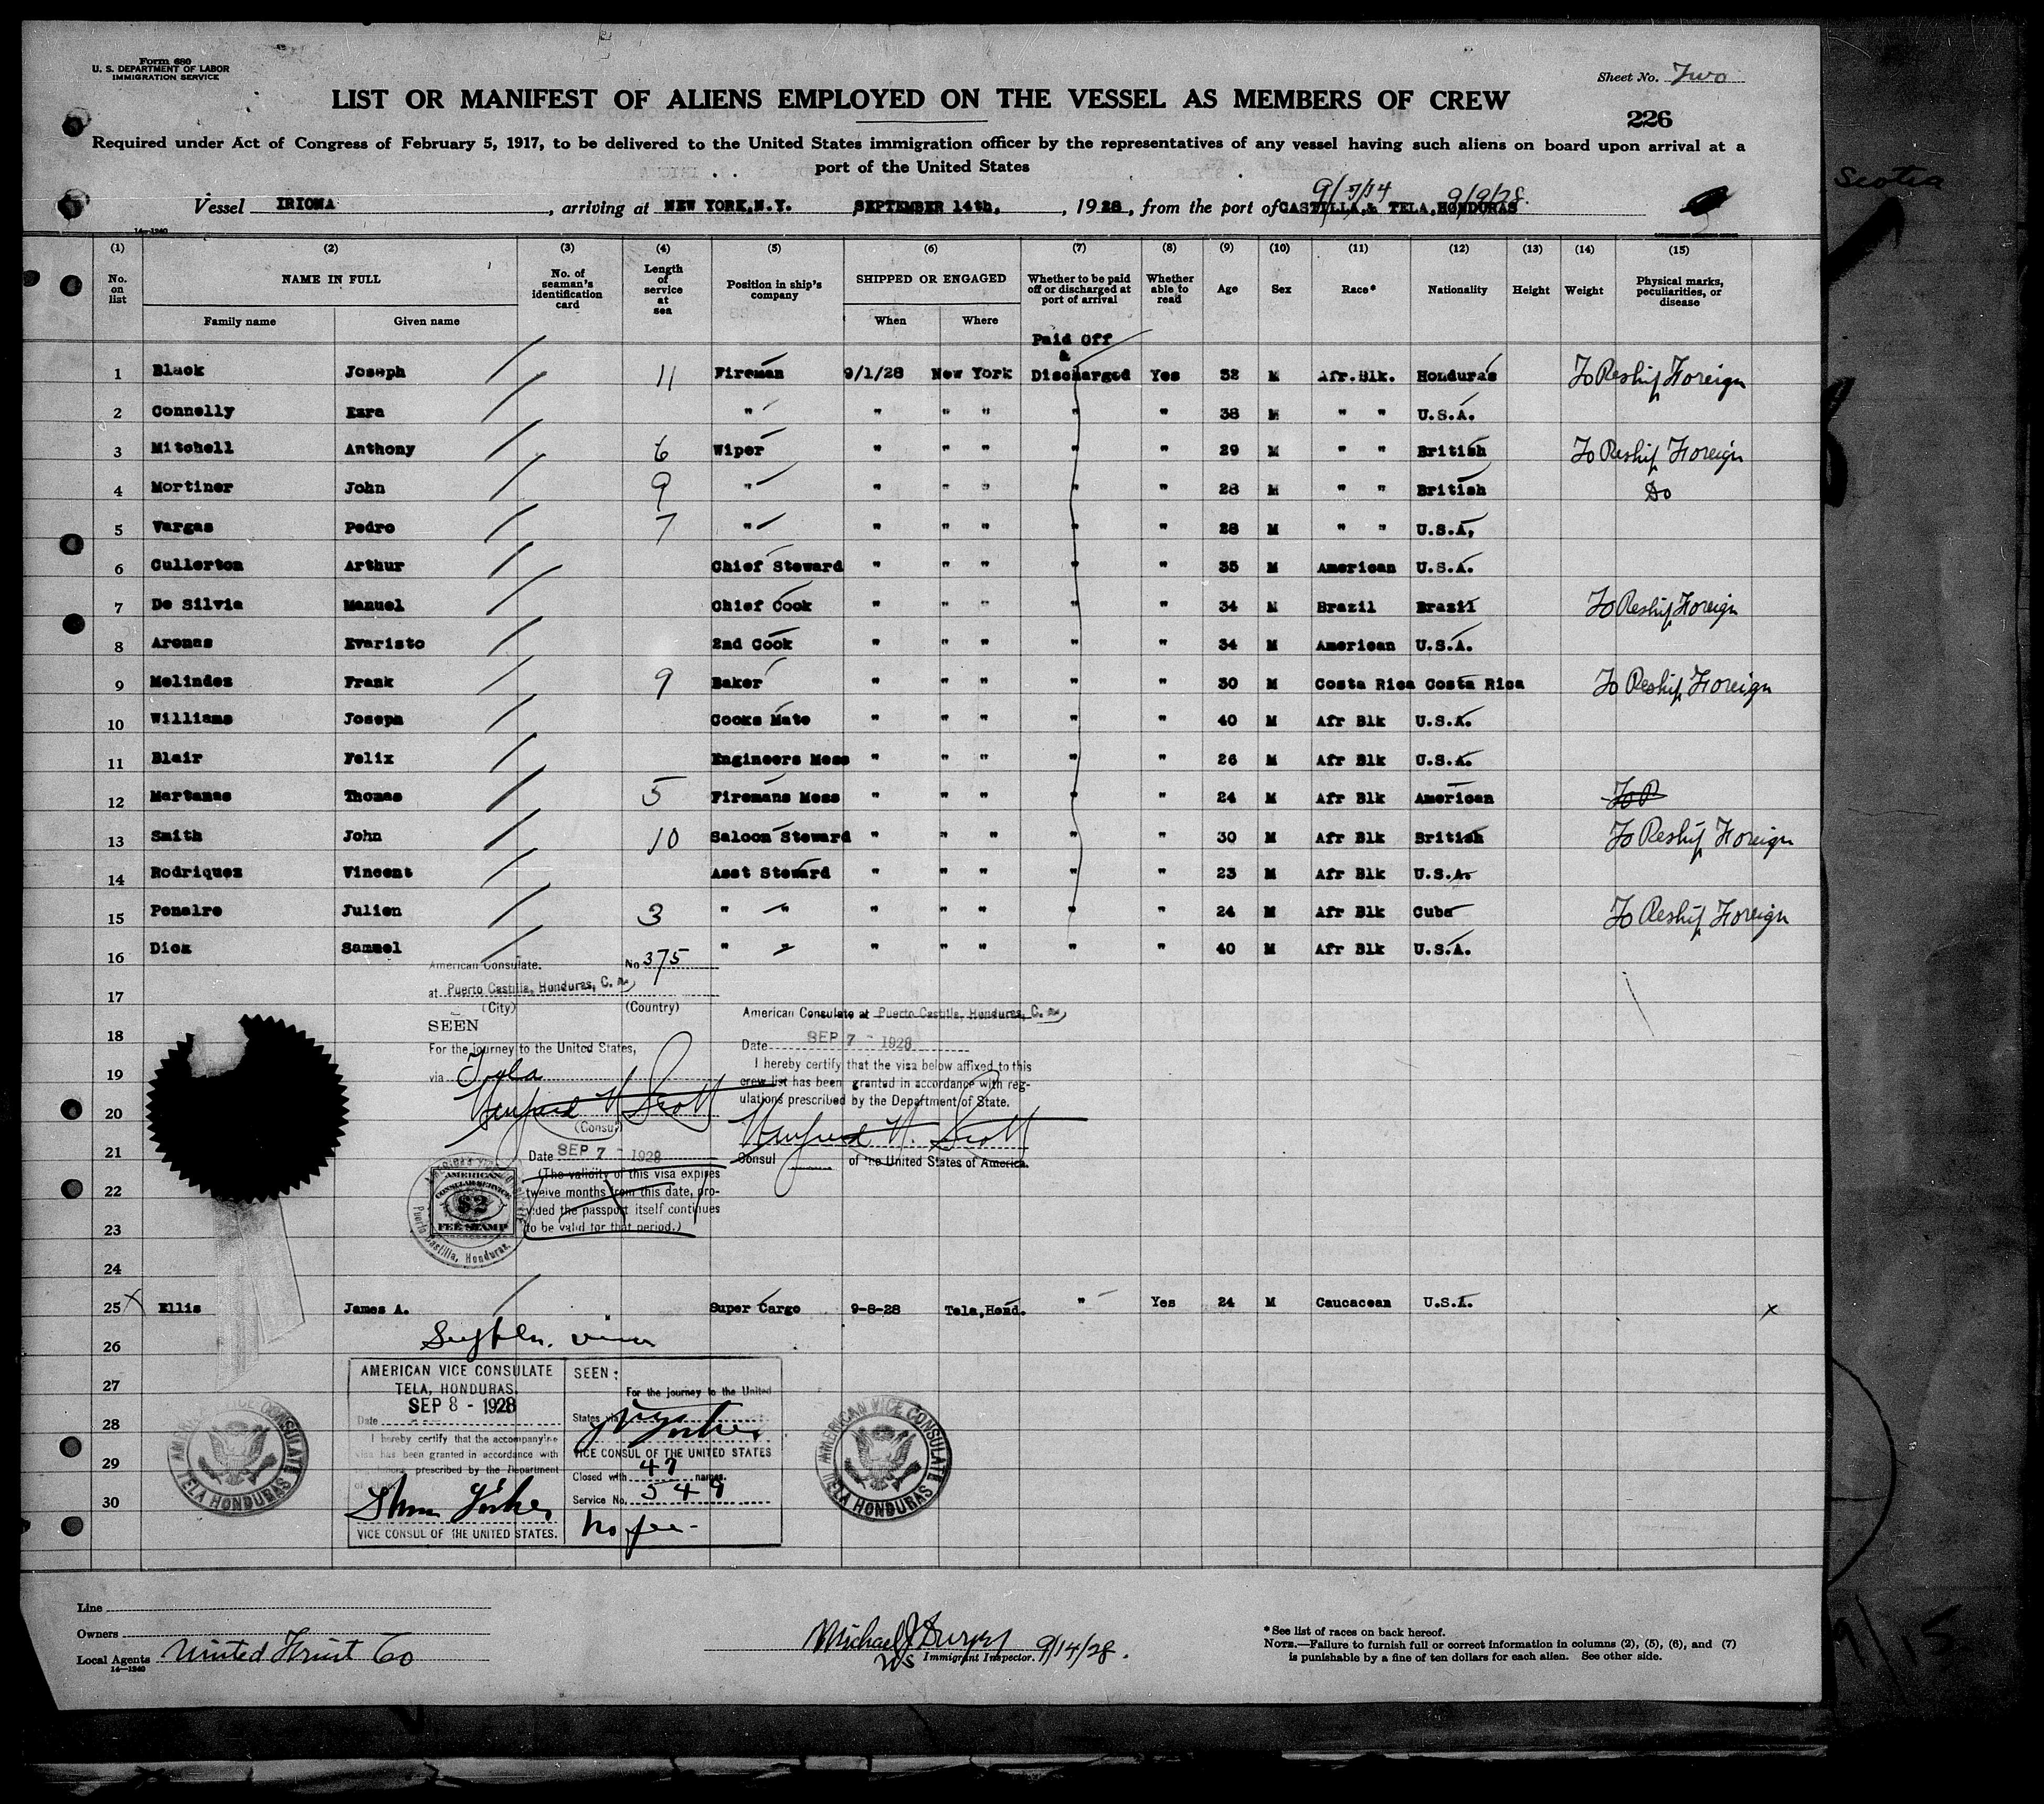 Form 680
U. S. DEPARTMENT OF LABOR
IMMIGRATION SERVICE
Sheet No. Two
LIST OR MANIFEST OF ALIENS EMPLOYED ON THE VESSEL AS MEMBERS OF CREW
226
Required under Act of Congress of February 5, 1917, to be delivered to the United States immigration officer by the representatives of any vessel having such aliens on board upon arrival at a
port of the United States
Scotia
9/7/14 9/9/28.
Vessel IRIONA, arriving at NEW YORK,N.Y. SEPTEMBER 14th, , 1928, from the port of CASTILLA,& TELA,HONDURAS
14-1240
(1) (2) (3) (4) (5) (6) (7) (8) (9) (10) (11) (12) (13) (14) (15)
No. on list NAME IN FULL No. of seaman's identification card Length of service at sea Position in ship's company SHIPPED OR ENGAGED Whether to be paid off or discharged at port of arrival Whether able to read Age Sex Race* Nationality Height Weight Physical marks, peculiarities, or disease
Family name Given name When Where
Paid Off
&
1 Black Joseph 11 Fireman 9/1/28 New York Discharged Yes 32 M Afr.Blk. Honduras To Reship Foreign
2 Connelly Ezra " " " " " " 38 M " " U.S.A.
3 Mitchell Anthony 6 Wiper " " " " " 29 M " " British To Reship Foreign
4 Mortiner John 9 " " " " " " 28 M " " British Do
5 Vargas Pedro 7 " " " " " " 28 M " " U.S.A,
6 Cullerton Arthur Chief Steward " " " " " 35 M American U.S.A.
7 De Silvia Manuel Chief Cook " " " " " 34 M Brazil Brazil To Reship Foreign
8 Arenas Evaristo 2nd Cook " " " " " 34 M American U.S.A.
9 Melindez Frank 9 Baker " " " " " 30 M Costa Rica Costa Rica To Reship Foreign
10 Williams Joseph Cooks Mate " " " " " 40 M Afr Blk U.S.A.
11 Blair Felix Engineers Mess " " " " " 26 M Afr Blk U.S.A.
12 Martanas Thomas 5 Firemans Mess " " " " " 24 M Afr Blk American To R
13 Smith John 10 Saloon Steward " " " " " 30 M Afr Blk British To Reship Foreign
14 Rodriquez Vincent Asst Steward " " " " " 23 M Afr Blk U.S.A.
15 Penalre Julien 3 " " " " " " " 24 M Afr Blk Cuba To Reship Foreign
16 Dick Samuel " " " " " " " 40 M Afr Blk U.S.A.
American Consulate. No 375
at Puerto Castilla, Honduras, C. A.
(City) (Country)
SEEN
For the journey to the United States,
via Tela
Winfred H Scott
(Consul)
Date SEP 7 - 1928
(The validity of this visa expires
twelve months from this date, pro-
vided the passport itself continues
to be valid for that period.)
AMERICAN
CONSULAR SERVICE
$2
FEE STAMP
Puerto Castilla, Honduras.
American Consulate at Puerto Castilla, Honduras, C. A.
Date SEP 7 - 1928
I hereby certify that the visa below affixed to this
crew list has been granted in accordance with reg-
ulations prescribed by the Department of State.
Winfred H. Scott
Consul of the United States of America.
17
18
19
20
21
22
23
24
25 x Ellis James A. Super Cargo 9-8-28 Tela,Hond. " Yes 24 M Caucacean U.S.A. x
26
27
28
29
30
AMERICAN VICE CONSULATE
TELA, HONDURAS.
SEP 8 - 1928
Date
I hereby certify that the accompanying
visa has been granted in accordance with
regulations prescribed by the Department
of
VICE CONSUL OF THE UNITED STATES.
SEEN:
For the journey to the United
States via
VICE CONSUL OF THE UNITED STATES
Closed with 47 names.
Service No. 549
No fee-
AMERICAN VICE CONSULATE
TELA HONDURAS
AMERICAN VICE CONSULATE
TELA HONDURAS
Line
Owners
Local Agents United Fruit Co
14-1240
Michael J
Immigrant Inspector. 9/14/28.
*See list of races on back hereof.
NOTE.—Failure to furnish full or correct information in columns (2), (5), (6), and (7)
is punishable by a fine of ten dollars for each alien. See other side.
9/15